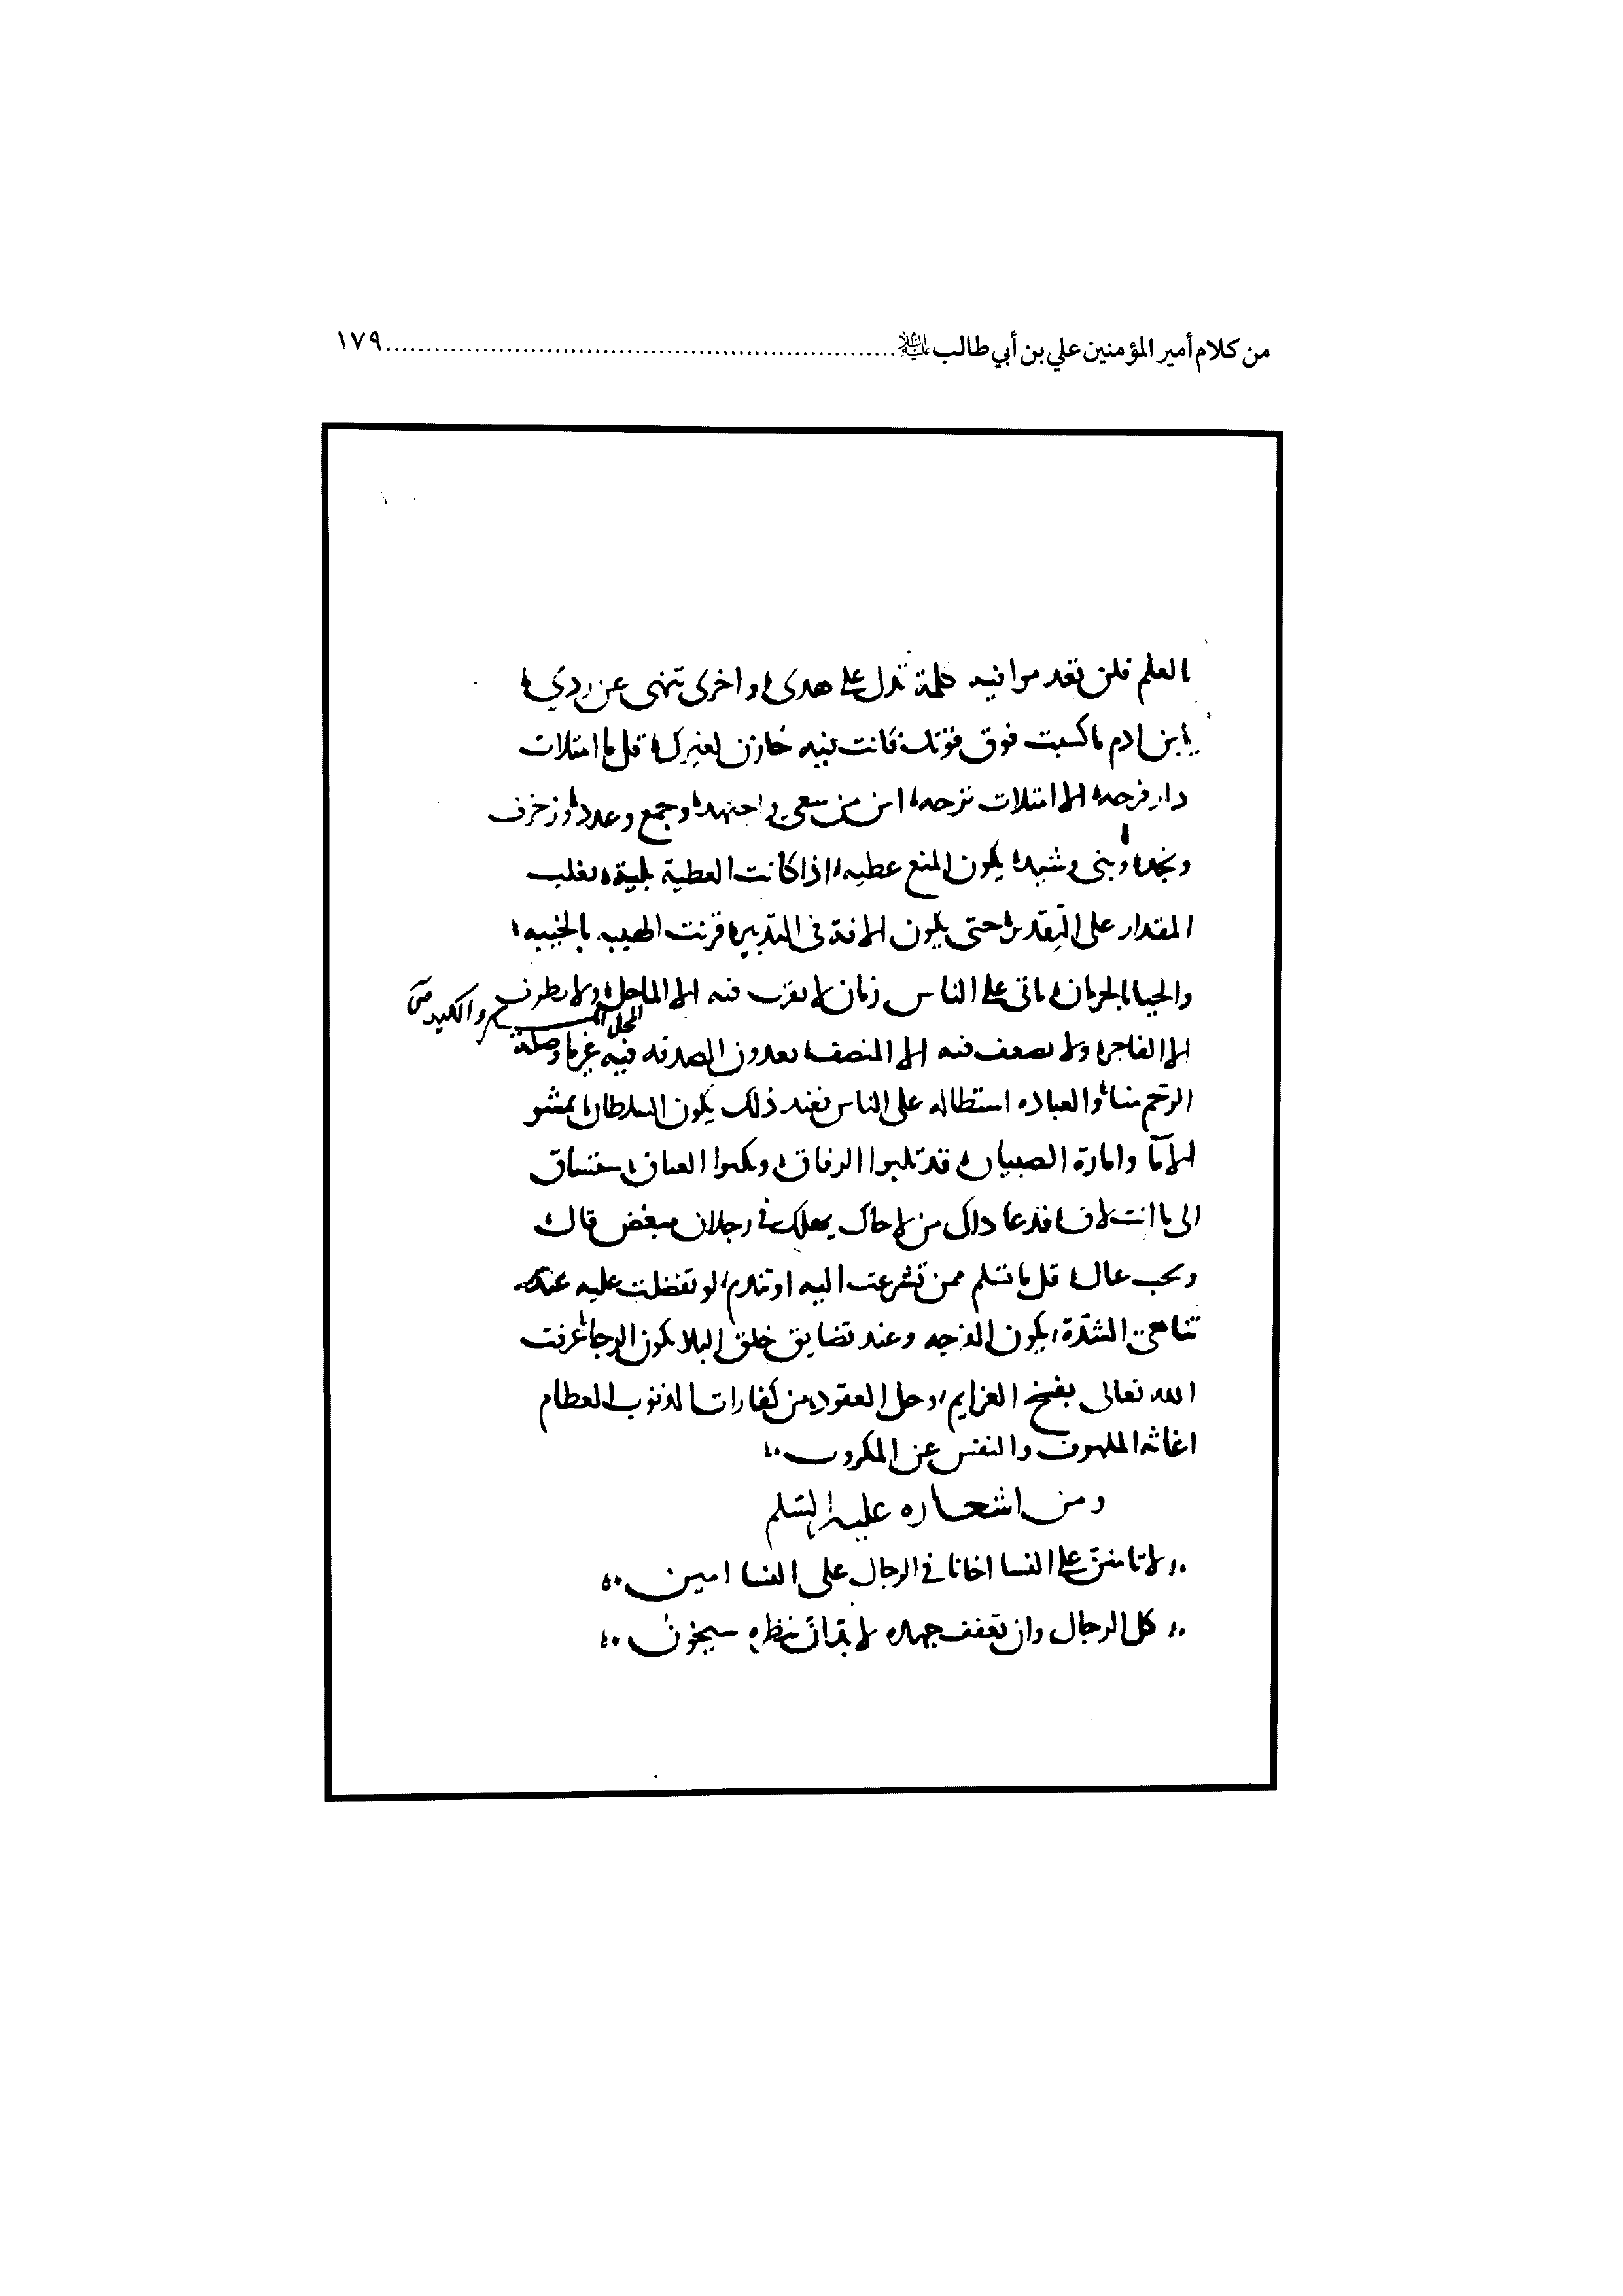 من كلام أمير المؤمنين علي بن أبي طالب عليه السلام ........ ١٧٩
العلم فلن تعدموا فيه كلمة تدل على هدى واخرى تنهى عن ردي
يابن ادم ما كسبت فوق قوتك فانت فيه خازن لغيرك قل ما امتلات
دار فرحه الا امتلات ترحه اين من سعى واجتهد وجمع وعدد وزخرف
ونجد وبنى وشيد يكون المنع عطيه اذا كانت العطية بلية يغلب
المقدار على التقدير حتى يكون الافة في التدبير قرنت الهيبه بالخيبه
والحيا بالحرمان ياتي على الناس زمان لا يقرب فيه الا الماحل ولا يظرف
المحل المكر والكيد صح
الا الفاجر ولا يضعف فيه الا المنصف يعدون الصدقه فيه غرما وصلة
الرحم منا والعباده استطاله على الناس فعند ذلك يكون السلطان بمشو
الاما وامارة الصبيان قد الرفاق العناق ستساق
الى ما انت لاق فدعا داك من لا حاك يهلك في رجلان مبغض قال
ومحب غال قل ما تسلم ممن تشرعت اليه او تندم لو تفضلت عليه عند
تناهي الشدة يكون الفرجه وعند تضايق حلق البلا يكون الرجا عرفت
الله تعالى بفسخ العزايم وحل العقود من كفارات الذنوب العظام
اغاثه الملهوف والتنفس عن المكروب
ومن اشعاره عليه السلم
لا تامنن على النسا اخا اخا ما في الرجال على النسا امين
كل الرجال وان تعفف جهده لا بد ان بنظره سيخون